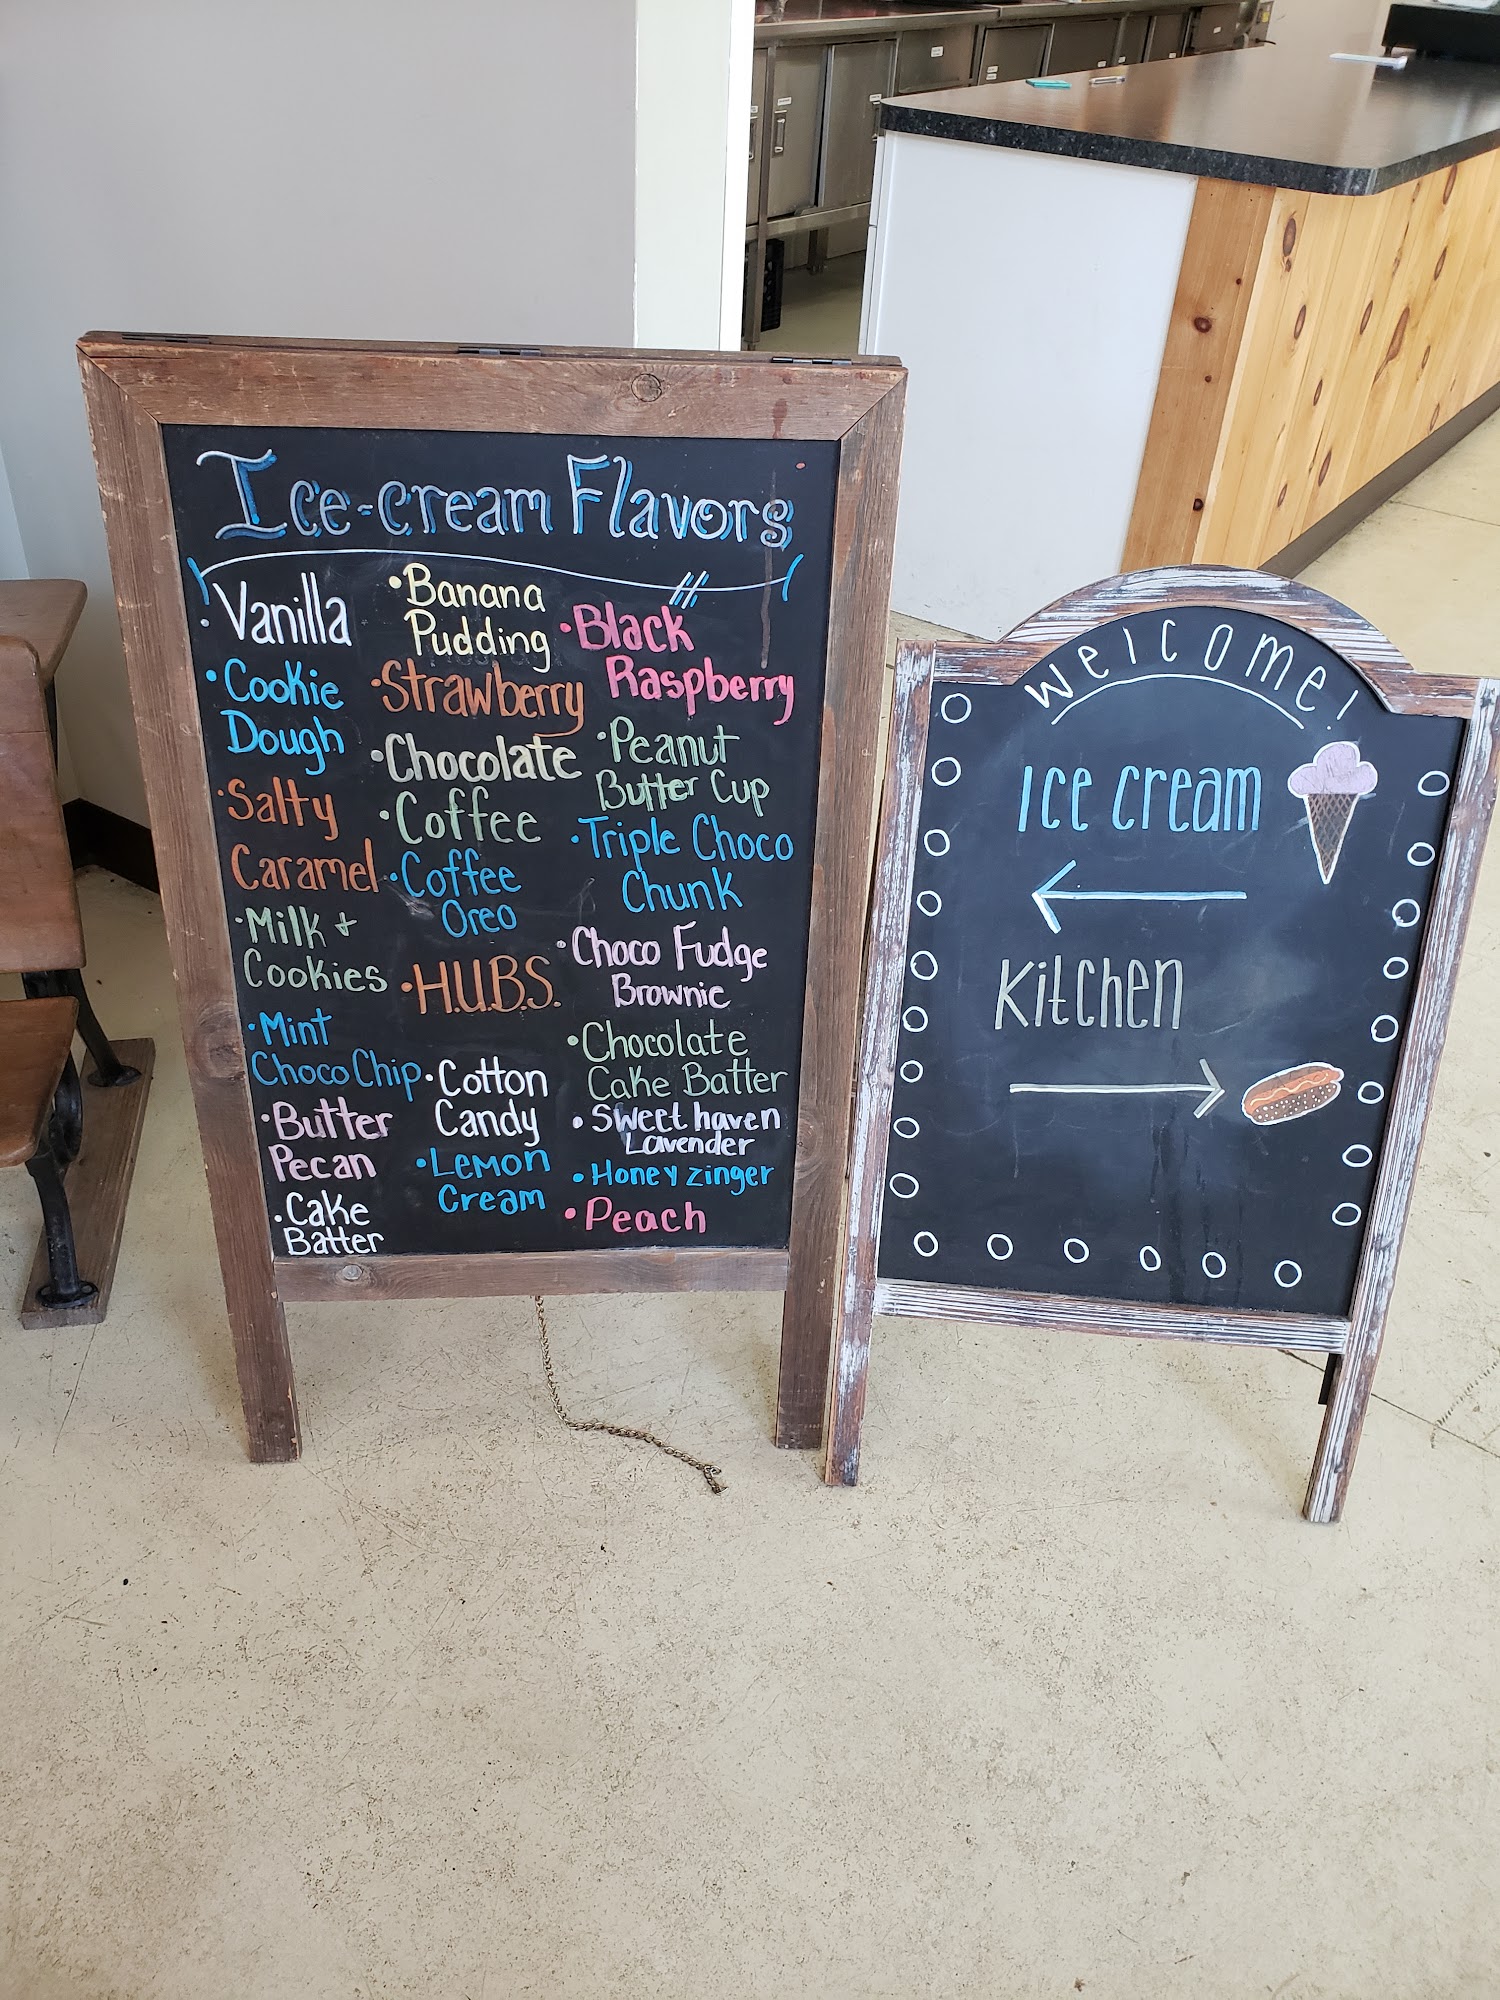 Ice-cream Flavors
• Vanilla
• Cookie
Dough
• Salty
Caramel
• Milk +
Cookies
• Mint
Choco Chip
• Butter
Pecan
• Cake
Batter
• Banana
Pudding
• Strawberry
• Chocolate
• Coffee
• Coffee
Oreo
• H.U.B.S.
• Cotton
Candy
• Lemon
Cream
• Black
Raspberry
• Peanut
Butter Cup
• Triple Choco
Chunk
• Choco Fudge
Brownie
• Chocolate
Cake Batter
• Sweet haven
Lavender
• Honey zinger
• Peach
Welcome!
Ice cream
Kitchen